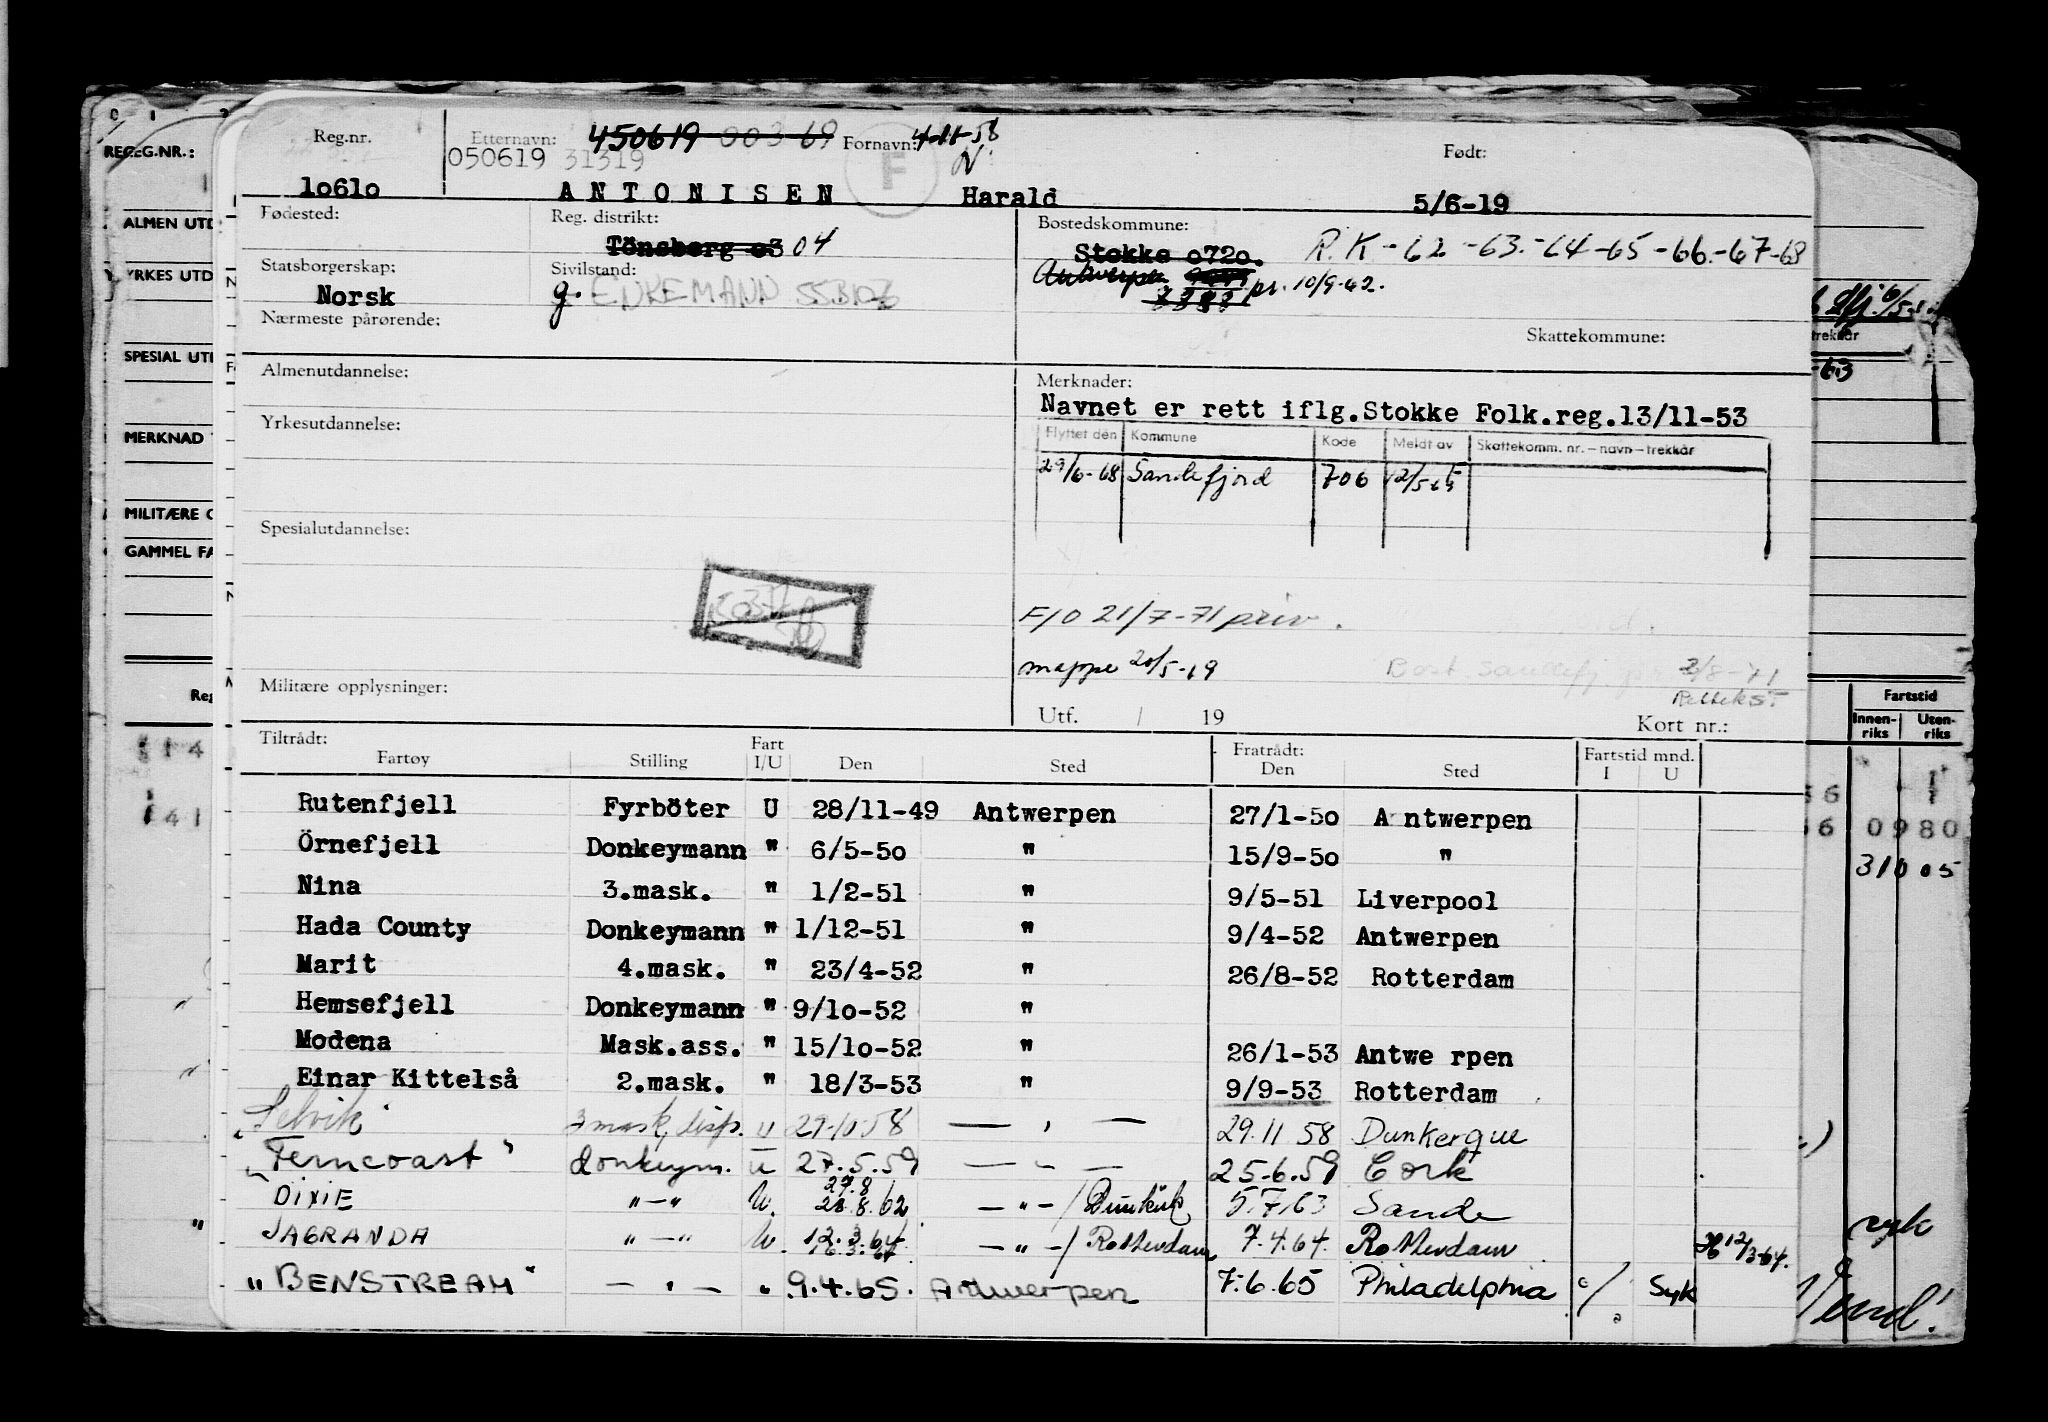 REG.NR.:
ALMEN UTD
YRKES UTD
SPESIAL UTD
MERKNAD
MILITÆRE O
GAMMEL FA
Reg
Reg.nr. Etternavn: 450619 003 69 Fornavn: 4-11-58 Født:
050619 31319 F N
lo6lo ANTONISEN Harald 5/6-19
Fødested: Reg. distrikt: Bostedskommune:
Tönsberg o3 04 Stokke o72o. R.K-62-63-64-65-66-67-68
Statsborgerskap: Sivilstand: Antwerpen pr. 10/9-62.
Norsk g. ENKEMANN
Nærmeste pårørende: Skattekommune:
Almenutdannelse: Merknader:
Navnet er rett iflg.Stokke Folk.reg.13/11-53
Yrkesutdannelse: Flyttet den Kommune Kode Meldt av Skattekomm. nr.-navn-trekkår
29/6-68 Sandefjord 706
Spesialutdannelse:
F/O 21/7-71 priv.
mappe 20/5-19
Militære opplysninger:
Utf. / 19 Kort nr.:
Tiltrådt: Fratrådt:
Fartøy Stilling Fart I/U Den Sted Den Sted Fartstid mnd. I U
Rutenfjell Fyrböter U 28/11-49 Antwerpen 27/1-5o A ntwerpen
Örnefjell Donkeymann " 6/5-5o " 15/9-5o "
Nina 3.mask. " 1/2-51 " 9/5-51 Liverpool
Hada County Donkeymann " 1/12-51 " 9/4-52 Antwerpen
Marit 4.mask. " 23/4-52 " 26/8-52 Rotterdam
Hemsefjell Donkeymann " 9/lo-52 "
Modena Mask.ass. " 15/lo-52 " 26/1-53 Antwe rpen
Einar Kittelså 2.mask. " 18/3-53 " 9/9-53 Rotterdam
Selvik 3 mask, disp. u 29-10-58 — " — 29.11 58 Dunkerque
"Ferncoast" donkeym. u 27.5.59 — " — 25.6.59 Cork
DIXIE "—" U. 27.8/28.8.62 — " — / Dunkirk 5.7.63 Sande
JAGRANDA "—" U. 12.3.64. — " — / Rotterdam 7.4.64. Rotterdam 12/3-64.
"BENSTREAM" — " — " 9.4.65. Antwerpen 7.6.65 Philadelphia Syk
Fartstid
Innen-riks Uten-riks
0980
310 05
syk